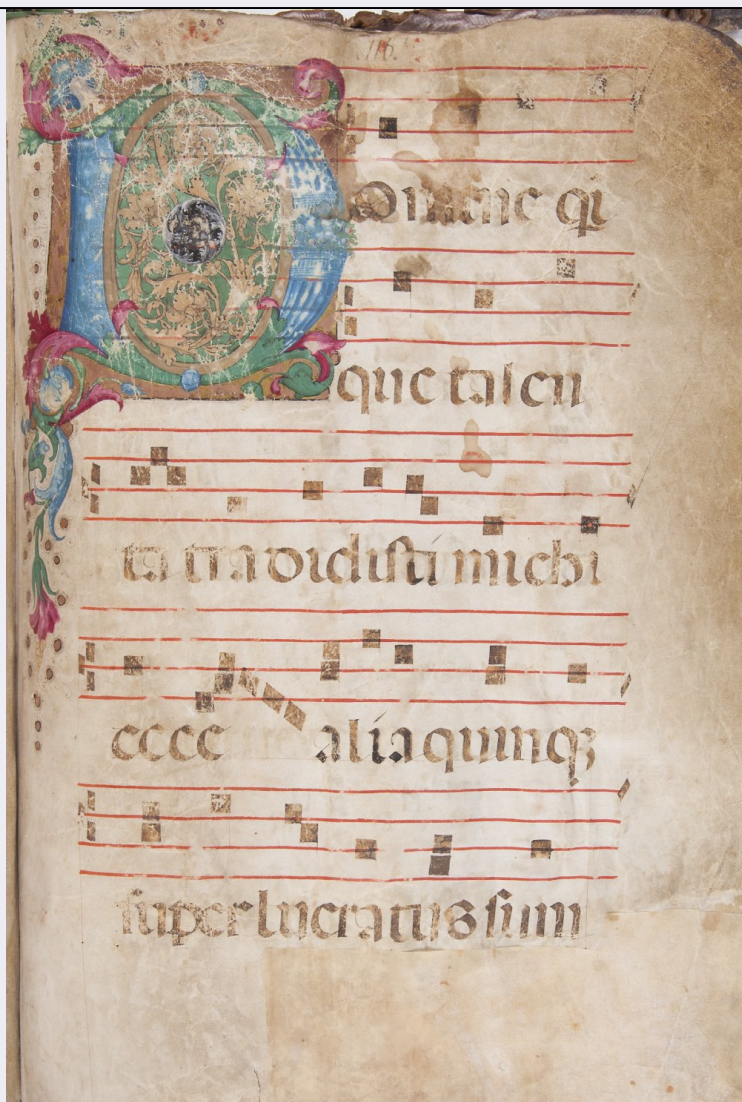 116.
Domine qi
que talen
ta tradidisti michi
ecce alia quinqꝫ
super lucratus sum